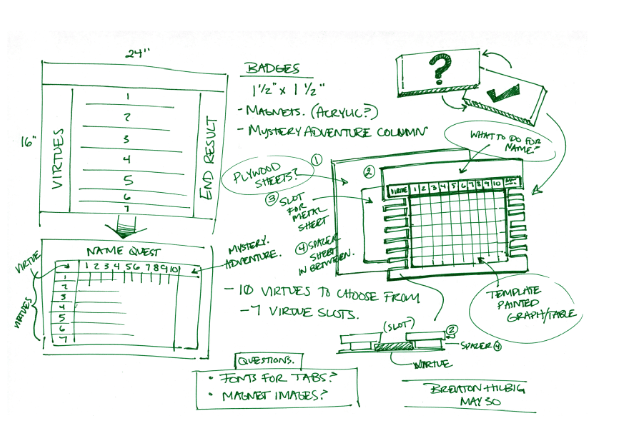 24"
16"
VIRTUES
1
2
3
4
5
6
7
END RESULT
BADGES
1 1/2" x 1 1/2"
- MAGNETS. (ACRYLIC?)
- MYSTERY ADVENTURE COLUMN
?
WHAT TO DO FOR
NAME?
①
PLYWOOD
SHEETS?
②
③ SLOT
FOR
METAL
SHEET
④ SPACER
SHEET
IN BETWEEN.
1 2 3 4 5 6 7 8 9 10
NAME QUEST
VIRTUE
1 2 3 4 5 6 7 8 9 10
1
2
3
4
5
6
7
VIRTUES
MYSTERY
ADVENTURE.
- 10 VIRTUES TO CHOOSE FROM
- 7 VIRTUE SLOTS.
TEMPLATE
PAINTED
GRAPH/TABLE
(SLOT)
②
SPACER ④
VIRTUE
QUESTIONS.
• FONTS FOR TABS?
• MAGNET IMAGES?
MAY 30